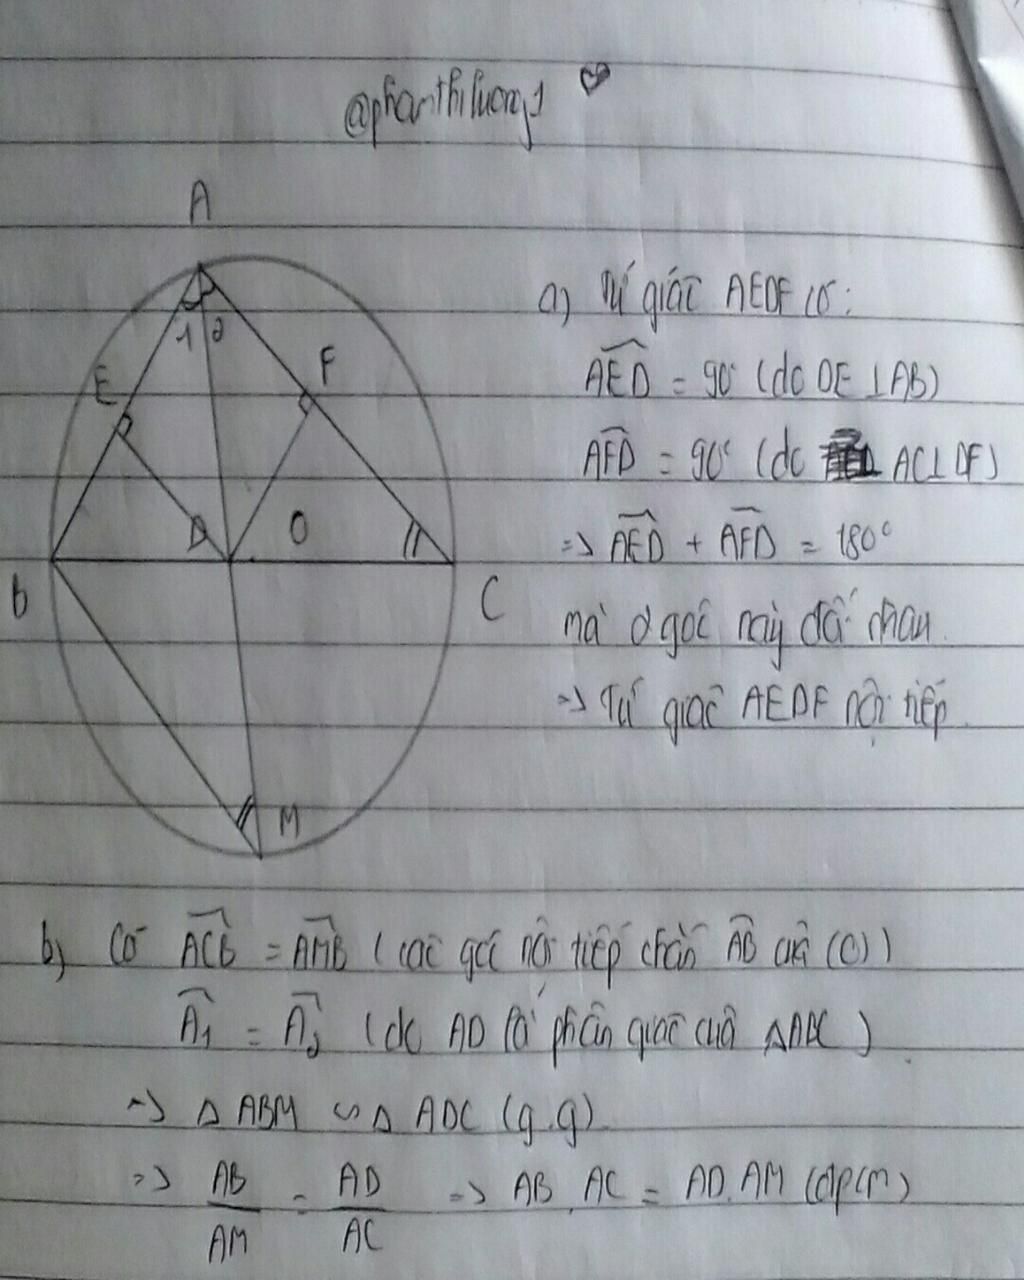 @phanthiluong1
A
1 2
E
F
D
O
B
C
M
a) Tứ giác AEDF có:
AED = 90° (do DE ⊥ AB)
AFD = 90° (do AC ⊥ DF)
=> AED + AFD = 180°
mà 2 góc này đối nhau.
=> Tứ giác AEDF nội tiếp.
b) Có ACB = AMB (các góc nội tiếp chắn AB của (O))
A1 = A2 (do AD là phân giác của △ABC)
=> △ ABM ∽ △ ADC (g.g)
=> AB/AM = AD/AC => AB.AC = AD.AM (đpcm)